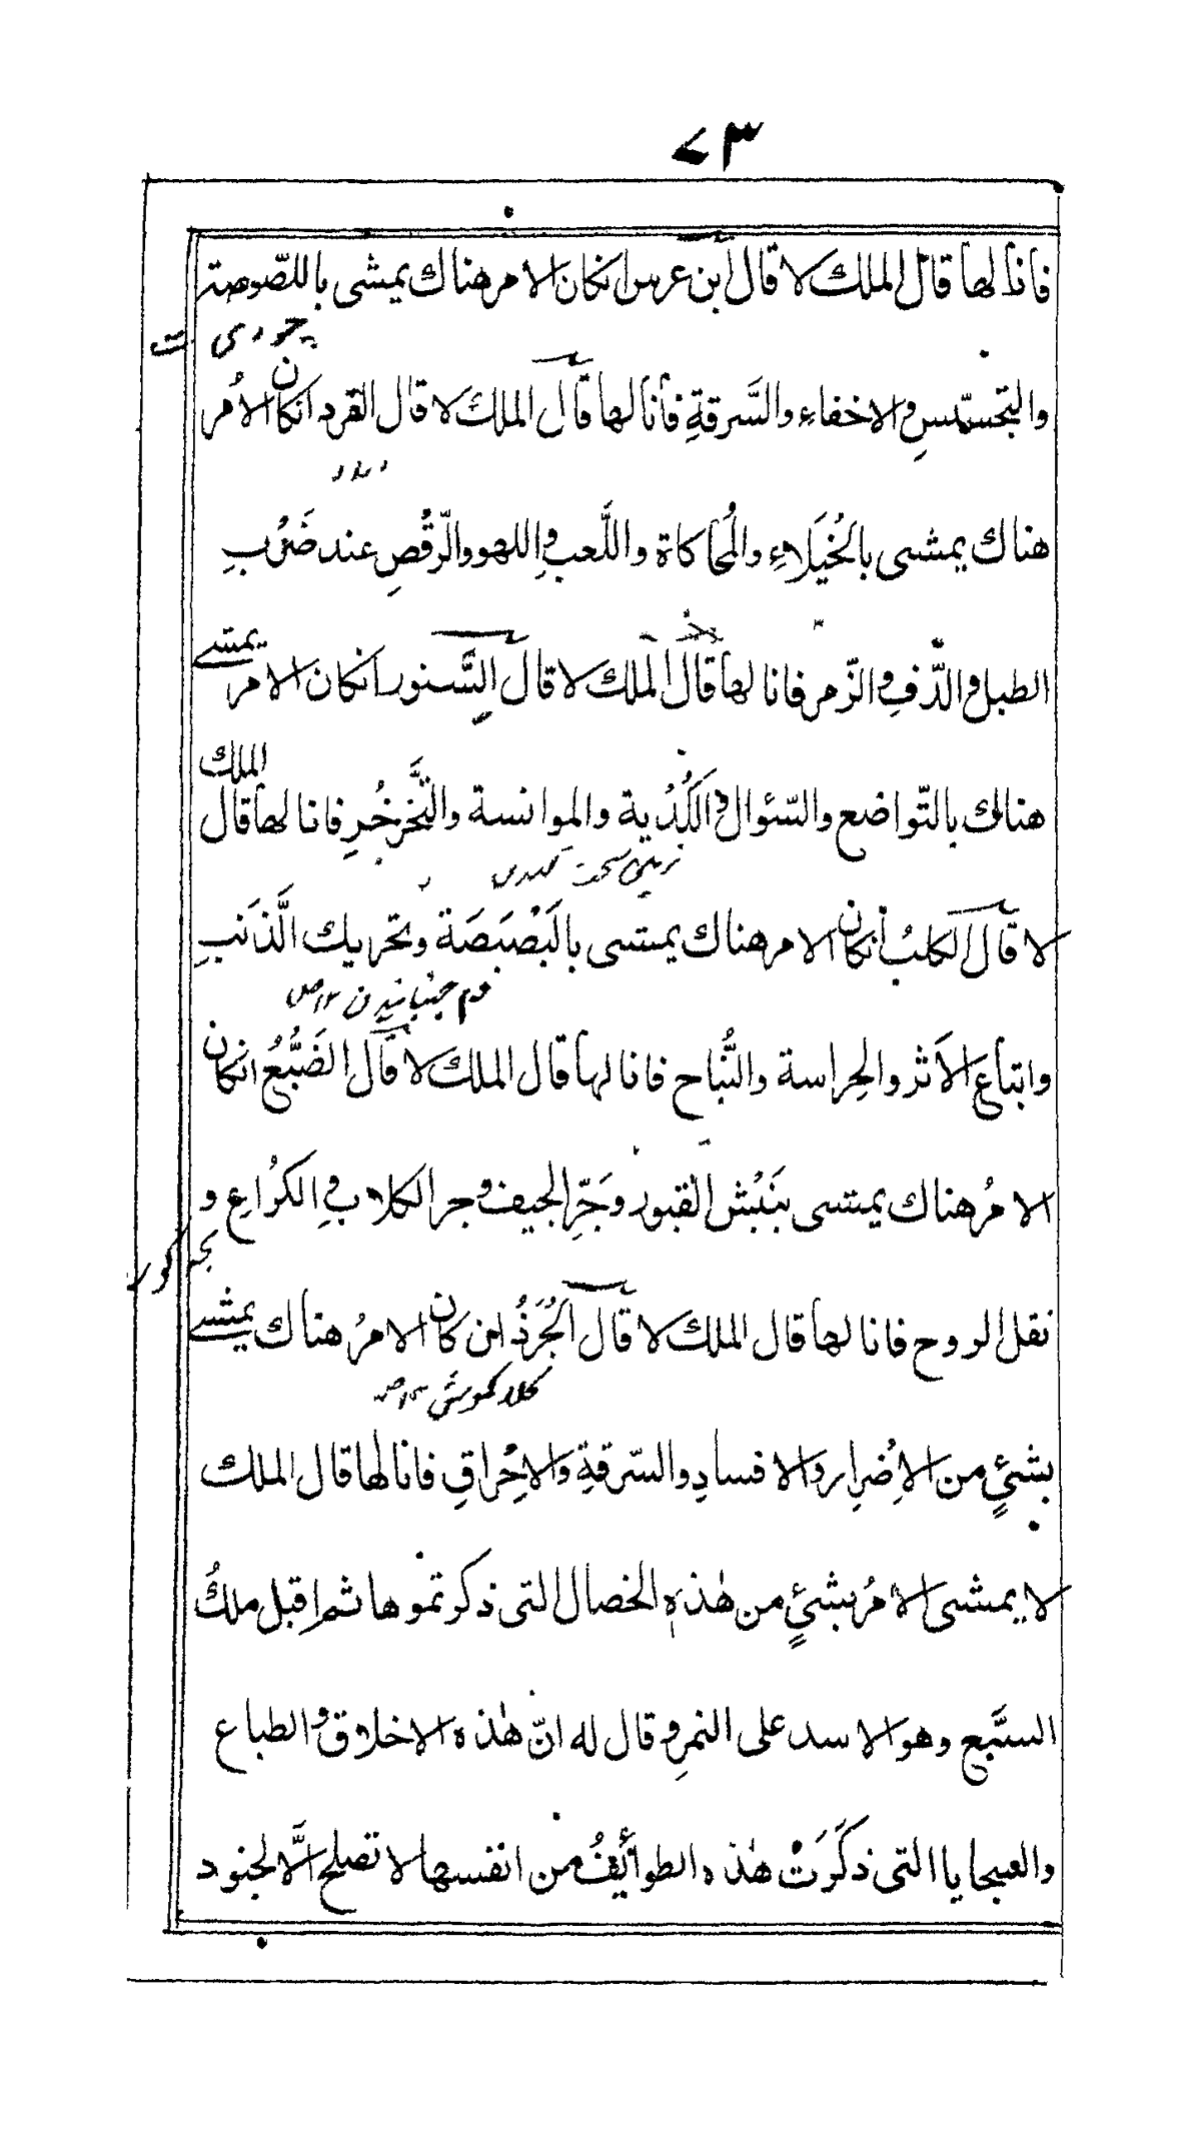 ٧٣
فانا لها قال الملك لا قال ابن عرس ان كان الامر هناك يمشى باللصّوصة
چوری
والتجسّس والاخفاء والسَّرقةِ فأنا لها قال الملك لا قال القرد انكان الامُر
هناك يمشى بالخُيَلاءِ والمُحاكاة واللَّعب واللهو والرّقُصِ عند ضَرُبِ
الطبل والدّفِ والزّمر فانا لها قال الملك لا قال السِّنور انكان الامر يمشے
هنالك بالتّواضع والسّئوال والكُدُية والموانسة والتَّخرخُرِ فانا لها قال الملك
لا قال الكلبُ انكان الامر هناك يمشى بالبَصْبَصَة وتحريك الَّذَنبِ
دم جنبانیدن ١٢ ص
وابتاع الاَثر والحِراسة والنُّباح فانا لها قال الملك لا قال الضَبُّعُ انكان
الامُر هناك يمشى بنَبُش القبور وجَرِّ الجيف وجر الكلاب والكُراعِ و
نقل الروح فانا لها قال الملك لا قال الجُرَذُ ان كان الامرُ هناك يمشے
کلاکموش ١٢ ص
بشئٍ من الاِضُرارِ والافسادِ والسّرقةِ والاِحُراقِ فانا لها قال الملك
لا يمشى الامرُ بشئٍ من هٰذه الخصال التى ذكرتموها ثم اقبل ملكُ
السَّبع وهو الاسد على النمرِ وقال له انّ هٰذه الاخلاق والطباع
والسجايا التى ذكَرَتْ هٰذه الطوائِفُ من انفسها لا تصلح الَّا لجنود